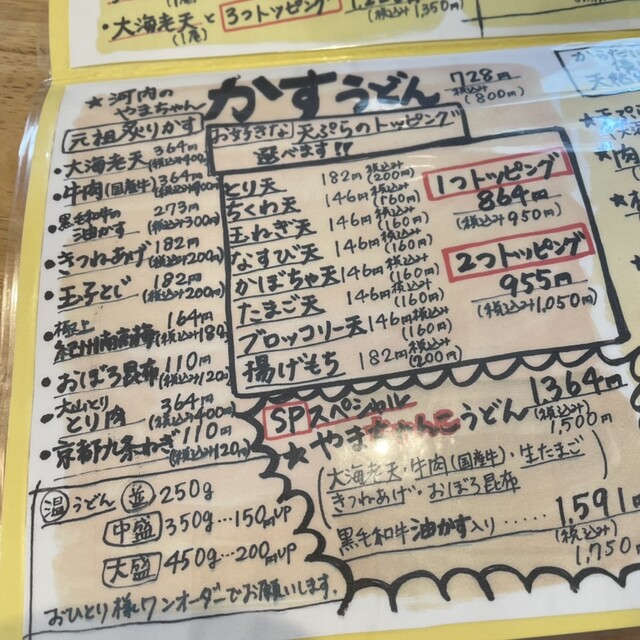 ・大海老天と 3つトッピング
(1尾)
(税込み1,350円)
★河内の
やまちゃん
かすうどん 728円
(税込み800円)
元祖 炙りかす
お好きな天ぷらのトッピング
選べます!!
・大海老天 364円
(1尾) (税込み400円)
・牛肉(国産牛) 364円
(税込み400円)
・黒毛和牛の 273円
油かす (税込み300円)
・きつねあげ 182円
(税込み200円)
・玉子とじ 182円
(税込み200円)
・極上 164円
紀州南高梅 (税込み180
・おぼろ昆布 110円
(税込み120
・大山どり 364円
とり肉 (税込み400円)
・京都九条ねぎ 110円
(税込み120円)
とり天 182円 税込み(200円)
ちくわ天 146円 税込み(160円)
玉ねぎ天 146円 税込み(160円)
なすび天 146円 税込み(160円)
かぼちゃ天 146円 税込み(160円)
たまご天 146円 税込み(160円)
ブロッコリー天 146円 税込み(160円)
揚げもち 182円 税込み(200円)
1つトッピング
864円
(税込み950円)
2つトッピング
955円
(税込み1,050円)
SPスペシャル
★やまちゃんこうどん 1,364円
(税込み)
1,500円
(大海老天・牛肉(国産牛)・生たまご
きつねあげ・おぼろ昆布)
黒毛和牛油かす入り・・・・・1,591
(税込み)
1,750円
温うどん 並 250g
中盛 350g…150円UP
大盛 450g…200円UP
おひとり様ワンオーダーでお願いします。